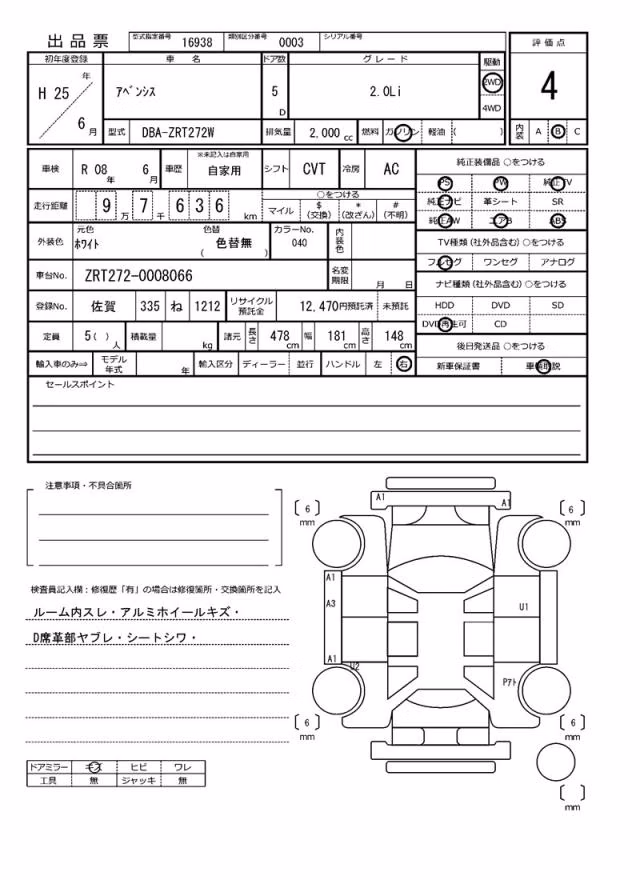 出品票 型式指定番号 16938 類別区分番号 0003 シリアル番号
評価点
4
内装 A B C
初年度登録 車名 ドア数 グレード 駆動
H 25 年 6 月 アベンシス 5 D 2.0Li 2WD 4WD
型式 DBA-ZRT272W 排気量 2,000 cc 燃料 ガソリン 軽油 ( )
車検 R 08 年 6 月 車歴 ※未記入は自家用 自家用 シフト CVT 冷房 AC
走行距離 9 万 7 千 6 3 6 km ○をつける
マイル $ (交換) * (改ざん) # (不明)
外装色 元色 ホワイト 色替 ( 色替無 ) カラーNo. 040 内装色
車台No. ZRT272-0008066 名変期限 月 日
登録No. 佐賀 335 ね 1212 リサイクル預託金 12,470円預託済 未預託
定員 5( ) 人 積載量 kg 諸元 長さ 478 cm 幅 181 cm 高さ 148 cm
輸入車のみ⇒ モデル年式 年 輸入区分 ディーラー 並行 ハンドル 左 右
純正装備品 ○をつける
PS PW 純正TV
純正ナビ 革シート SR
純正AW エアB ABS
TV種類 (社外品含む) ○をつける
フルセグ ワンセグ アナログ
ナビ種類 (社外品含む) ○をつける
HDD DVD SD
DVD再生可 CD
後日発送品 ○をつける
新車保証書 車輌取説
セールスポイント
注意事項・不具合箇所
検査員記入欄：修復歴「有」の場合は修復箇所・交換箇所を記入
ルーム内スレ・アルミホイールキズ・
D席革部ヤブレ・シートシワ・
ドアミラー キズ ヒビ ワレ
工具 無 ジャッキ 無
A1 A1
6 mm 6 mm
A1
A3 U1
A1
U2
Pアト
6 mm 6 mm
mm